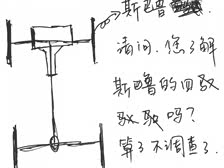 斯巴鲁
请问，您了解
斯巴鲁的四驱
吗？
算了不调查了